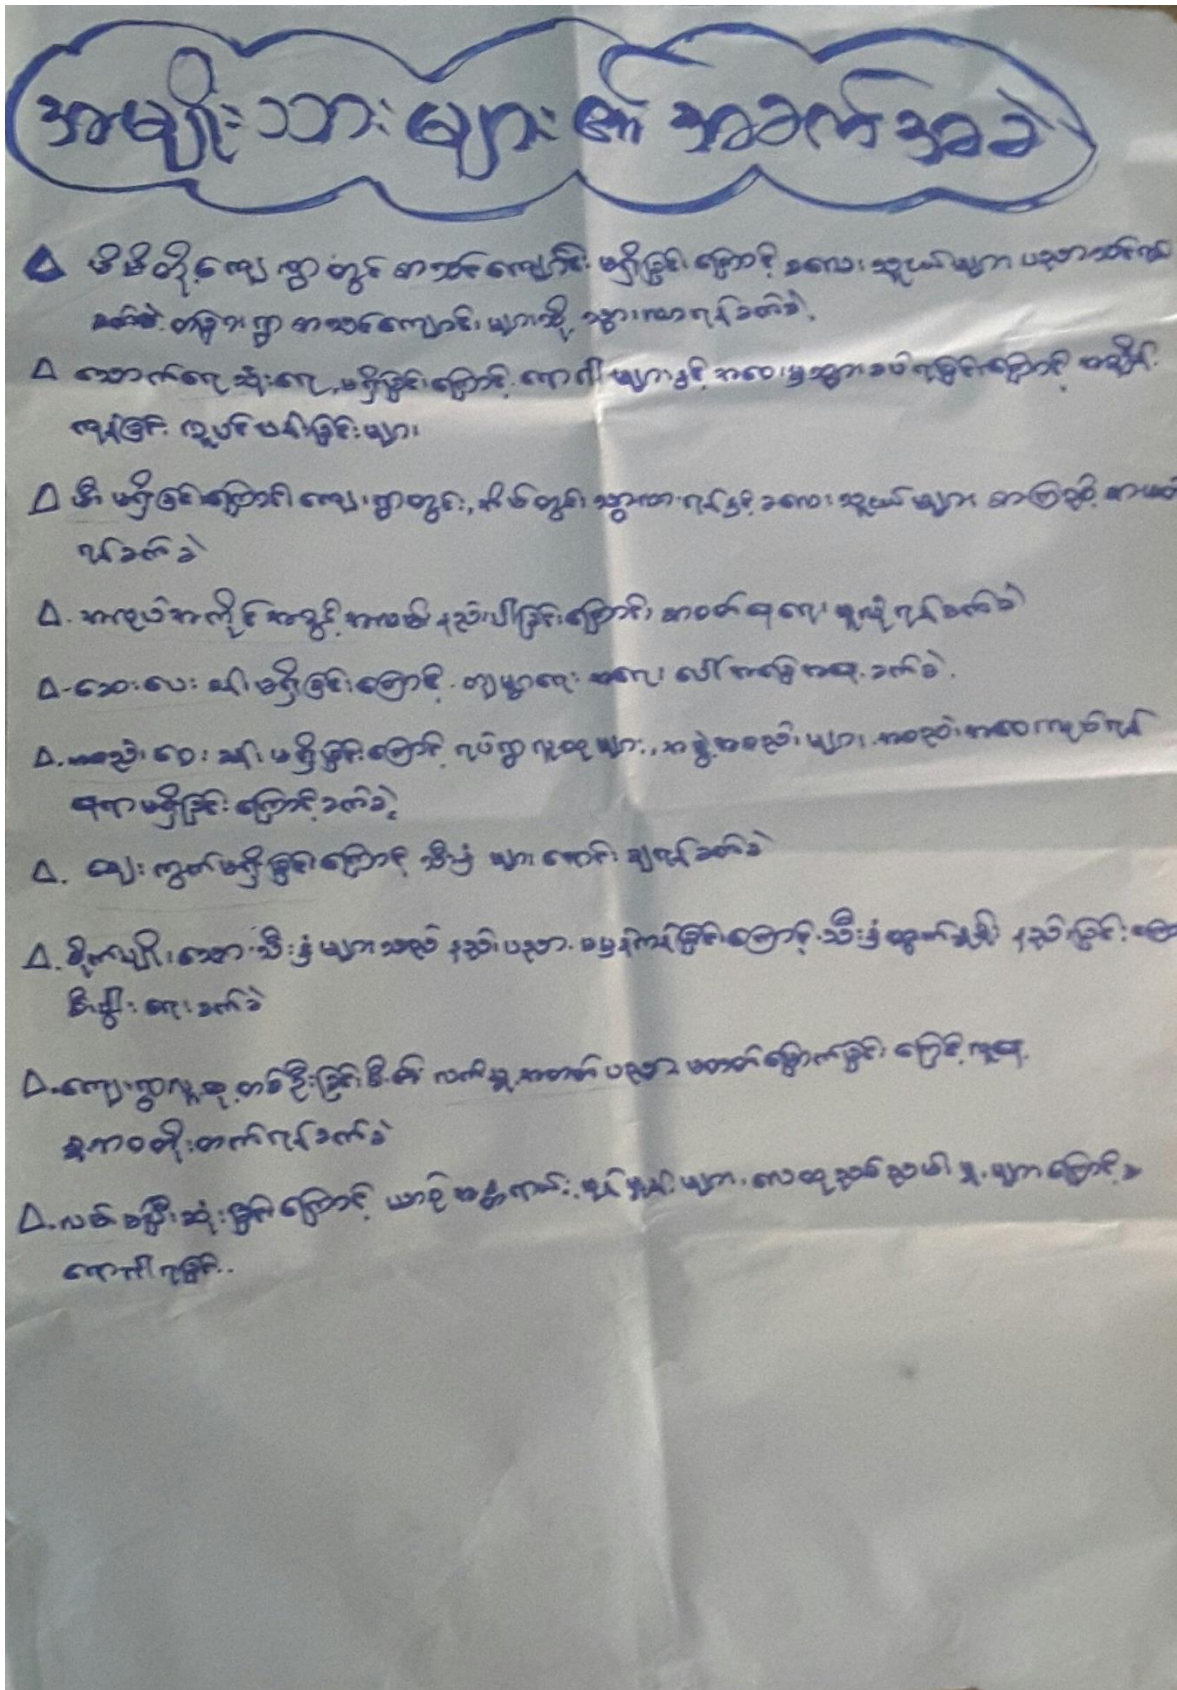 အမျိုးသားများ၏ အခက်အခဲ
မိမိတို့ကျေးရွာတွင် စာသင်ကျောင်း မရှိခြင်းကြောင့် ကလေးသူငယ်များ ပညာသင်ရန်
ခက်ခဲ. တခြားရွာ စာသင်ကျောင်းများသို့ သွားလာရန်ခက်ခဲ.
သောက်ရေသုံးရေ, မရှိခြင်းကြောင့် ရောဂါများနှင့် အဝေးမှသွားခပ်ရခြင်းကြောင့် အချိန်
ကုန်ခြင်း လူပင်ပန်းခြင်းများ
မီး မရှိခြင်းကြောင့် ကျေးရွာတွင်း, အိမ်တွင်း သွားလာရန်နှင့် ကလေးသူငယ်များ စာကြည့်စာဖတ်
ရန်ခက်ခဲ
အလုပ်အကိုင်အခွင့်အလမ်း နည်းပါးခြင်းကြောင့် စားဝတ်နေရေး ဖူလုံရန်ခက်ခဲ
ဆေးပေးခန်းမရှိခြင်းကြောင့် ကျန်းမာရေး စောင့်ရှောက် ခက်ခဲ.
အစည်းအဝေးခန်း မရှိခြင်းကြောင့် ရပ်ရွာလူထုများ, အဖွဲ့အစည်းများ အစည်းအဝေးလုပ်ရန်
နေရာမရှိခြင်းကြောင့် ခက်ခဲ
ဈေးကွက်မရှိခြင်းကြောင့် သီးနှံများ ရောင်းချရန်ခက်ခဲ
စိုက်ပျိုးသော သီးနှံများသည် နည်းပညာ မမှန်ကန်ခြင်းကြောင့် သီးနှံထွက်နှုန်း နည်းခြင်း
စီးပွားရေးခက်ခဲ
ကျေးရွာလူထု တစ်ဦးခြင်းစီ၏ လက်မှုအတတ်ပညာ မတတ်မြောက်ခြင်းကြောင့် လူနေ
မှုဘဝတိုးတက်ရန်ခက်ခဲ
လမ်းခရီးဆိုးခြင်းကြောင့် ယာဉ်အန္တရာယ်, များ လေထုညစ်ညမ်းမှုများကြောင့်
ရောဂါရခြင်း..